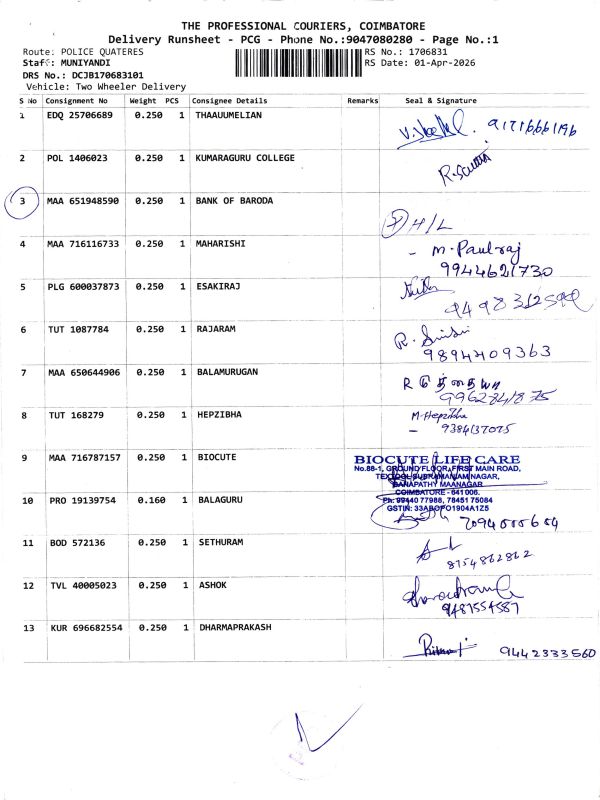 THE PROFESSIONAL COURIERS, COIMBATORE
Delivery Runsheet - PCG - Phone No.:9047080280 - Page No.:1
Route: POLICE QUATERES
RS No.: 1706831
Staff: MUNIYANDI
RS Date: 01-Apr-2026
DRS No.: DCJB170683101
Vehicle: Two Wheeler Delivery
S No Consignment No Weight PCS Consignee Details Remarks Seal & Signature
1 EDQ 25706689 0.250 1 THAAUUMELIAN
2 POL 1406023 0.250 1 KUMARAGURU COLLEGE
3 MAA 651948590 0.250 1 BANK OF BARODA
H/L
4 MAA 716116733 0.250 1 MAHARISHI
- M. Paulraj
9944621730
5 PLG 600037873 0.250 1 ESAKIRAJ
6 TUT 1087784 0.250 1 RAJARAM
7 MAA 650644906 0.250 1 BALAMURUGAN
9962841875
8 TUT 168279 0.250 1 HEPZIBHA
M. Hepzibha
- 9384137075
9 MAA 716787157 0.250 1 BIOCUTE
BIOCUTE LIFE CARE
No.88-1, GROUND FLOOR, FIRST MAIN ROAD,
TEXTOOL SUBRAMANIAM NAGAR,
GANAPATHY MAANAGAR,
COIMBATORE - 641 006.
Ph: 99440 77988, 78451 75084
GSTIN: 33ABOFO1904A1Z5
10 PRO 19139754 0.160 1 BALAGURU
11 BOD 572136 0.250 1 SETHURAM
8754862862
12 TVL 40005023 0.250 1 ASHOK
9487554587
13 KUR 696682554 0.250 1 DHARMAPRAKASH
9442333560